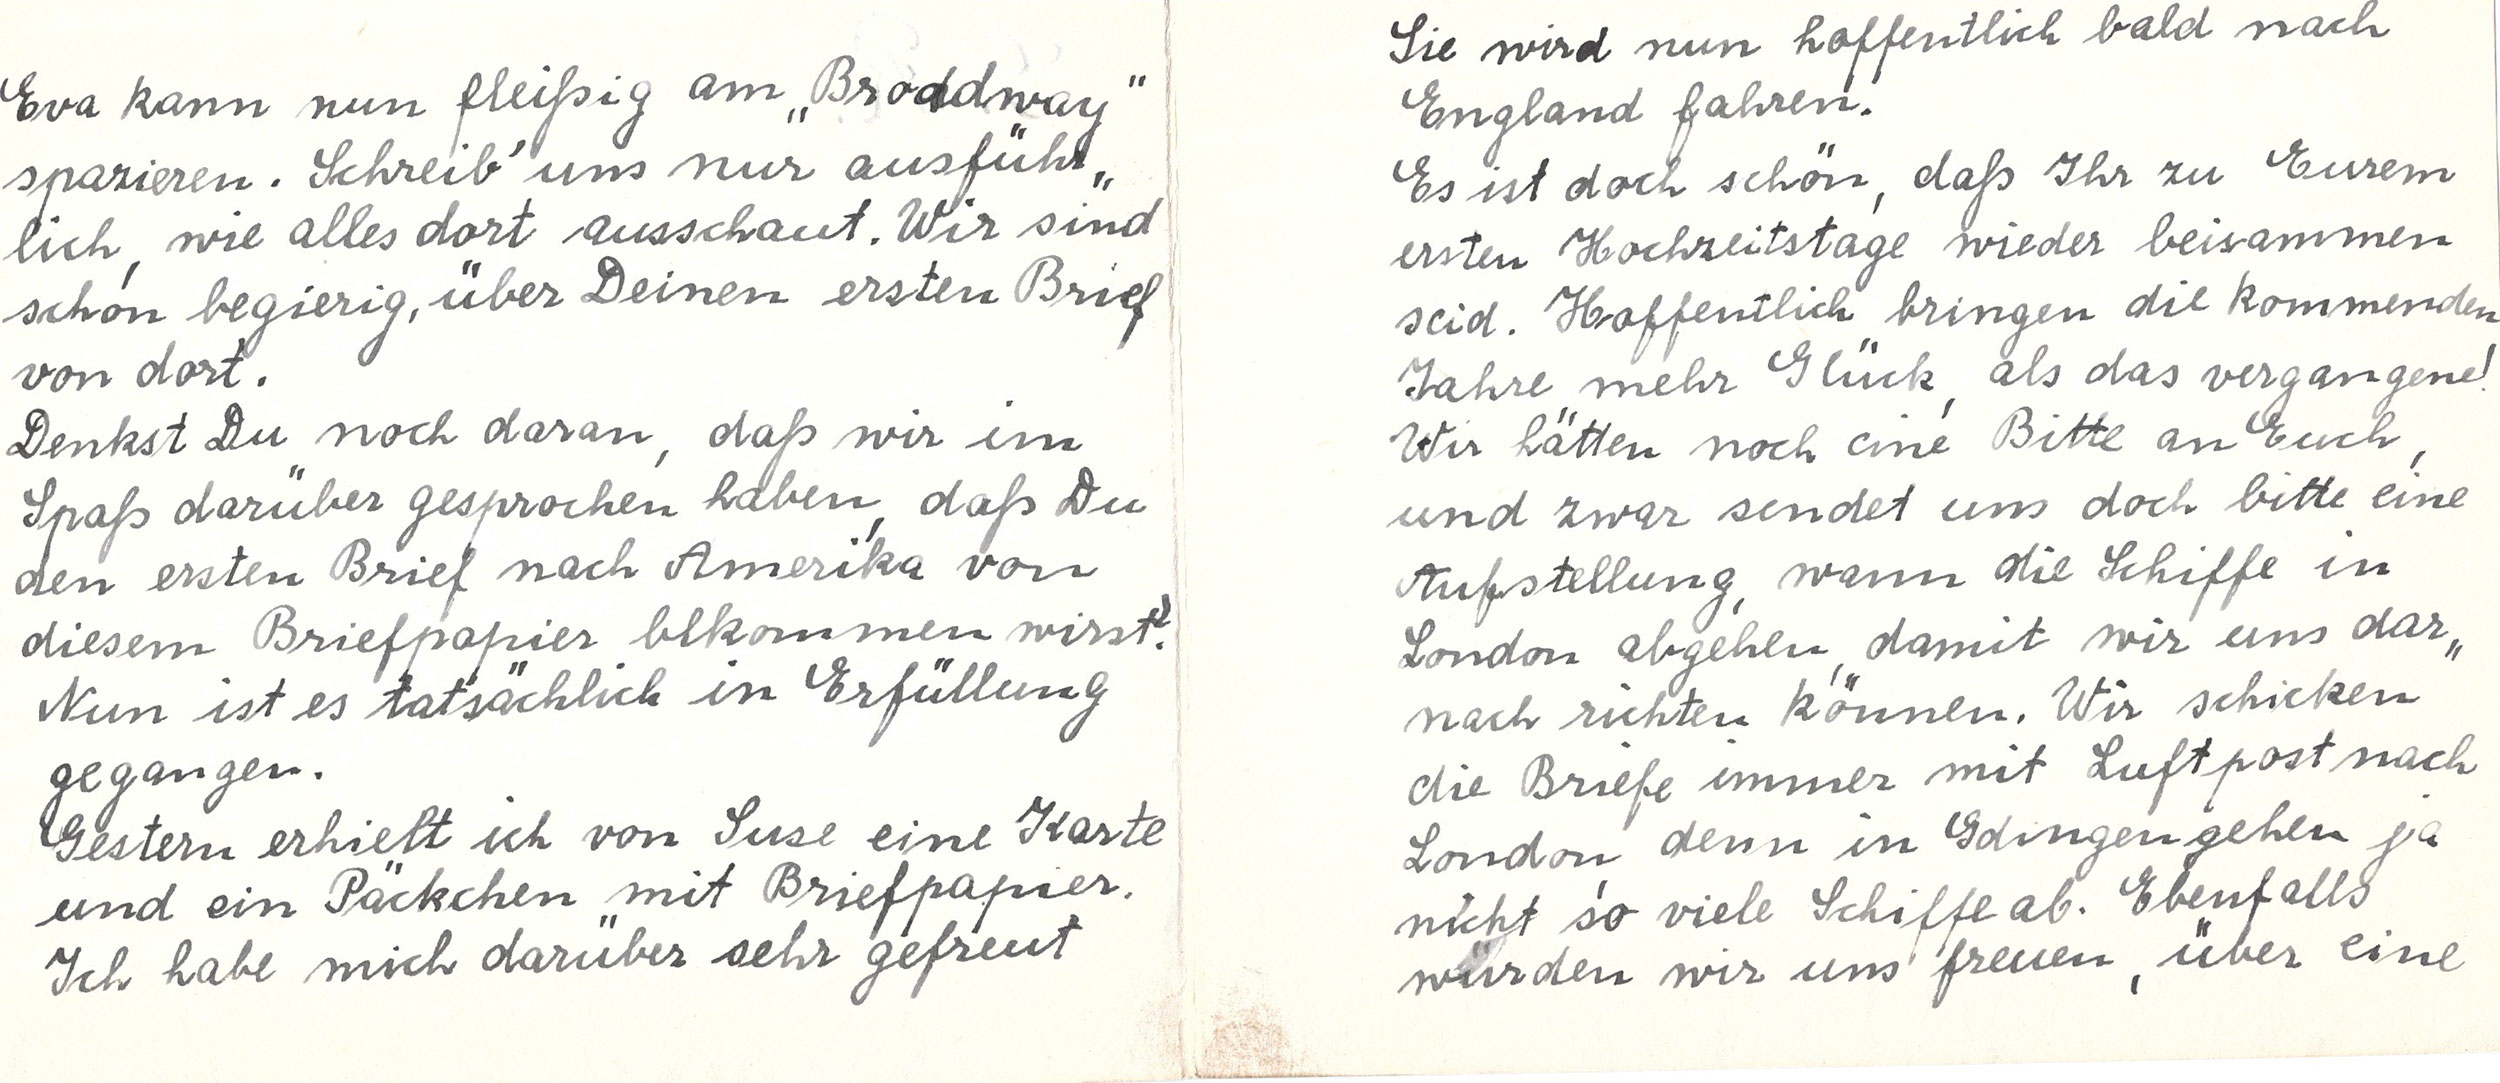 Eva kann nun fleißig am „Broddway"
spazieren. Schreib' uns nur ausführ„
lich, wie alles dort ausschaut. Wir sind
schon begierig, über Deinen ersten Brief
von dort.
Denkst Du noch daran, daß wir im
Spaß darüber gesprochen haben, daß Du
den ersten Brief nach Amerika von
diesem Briefpapier bekommen wirst?
Nun ist es tatsächlich in Erfüllung
gegangen.
Gestern erhielt ich von Suse eine Karte
und ein Päckchen mit Briefpapier.
Ich habe mich darüber sehr gefreut
Sie wird nun hoffentlich bald nach
England fahren.
Es ist doch schön, daß Ihr zu Eurem
ersten Hochzeitstage wieder beisammen
seid. Hoffentlich bringen die kommenden
Jahre mehr Glück, als das vergangene!
Wir hätten noch eine Bitte an Euch,
und zwar sendet uns doch bitte eine
Aufstellung, wann die Schiffe in
London abgehen, damit wir uns dar„
nach richten können. Wir schicken
die Briefe immer mit Luftpost nach
London, denn in Gdingen gehen ja
nicht so viele Schiffe ab. Ebenfalls
würden wir uns freuen, über eine